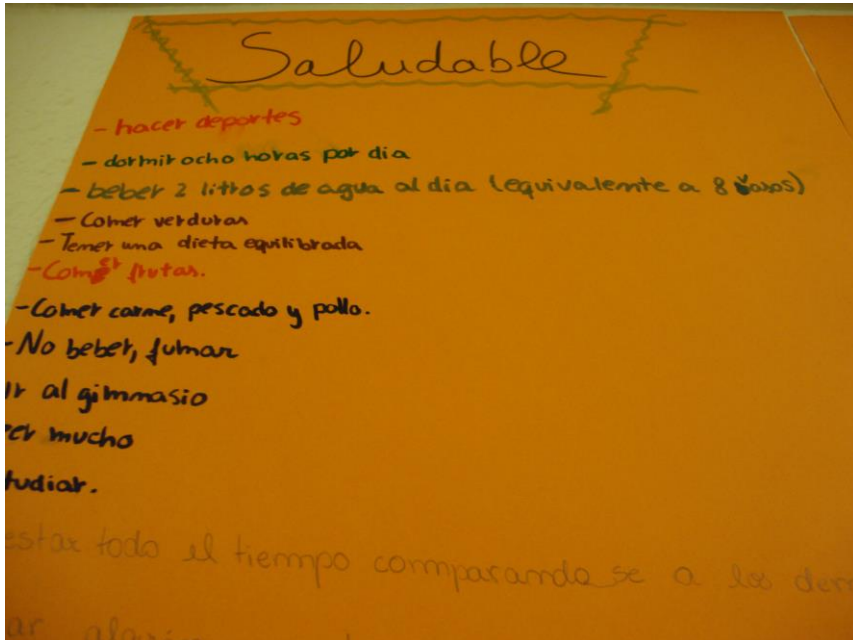 Saludable
- hacer deportes
- dormir ocho horas por dia
- beber 2 litros de agua al dia (equivalente a 8 vasos)
- Comer verduras
- Tener una dieta equilibrada
- Comer frutas.
- Comer carne, pescado y pollo.
- No beber, fumar
ir al gimnasio
er mucho
tudiar.
estar todo el tiempo comparandose a los dem